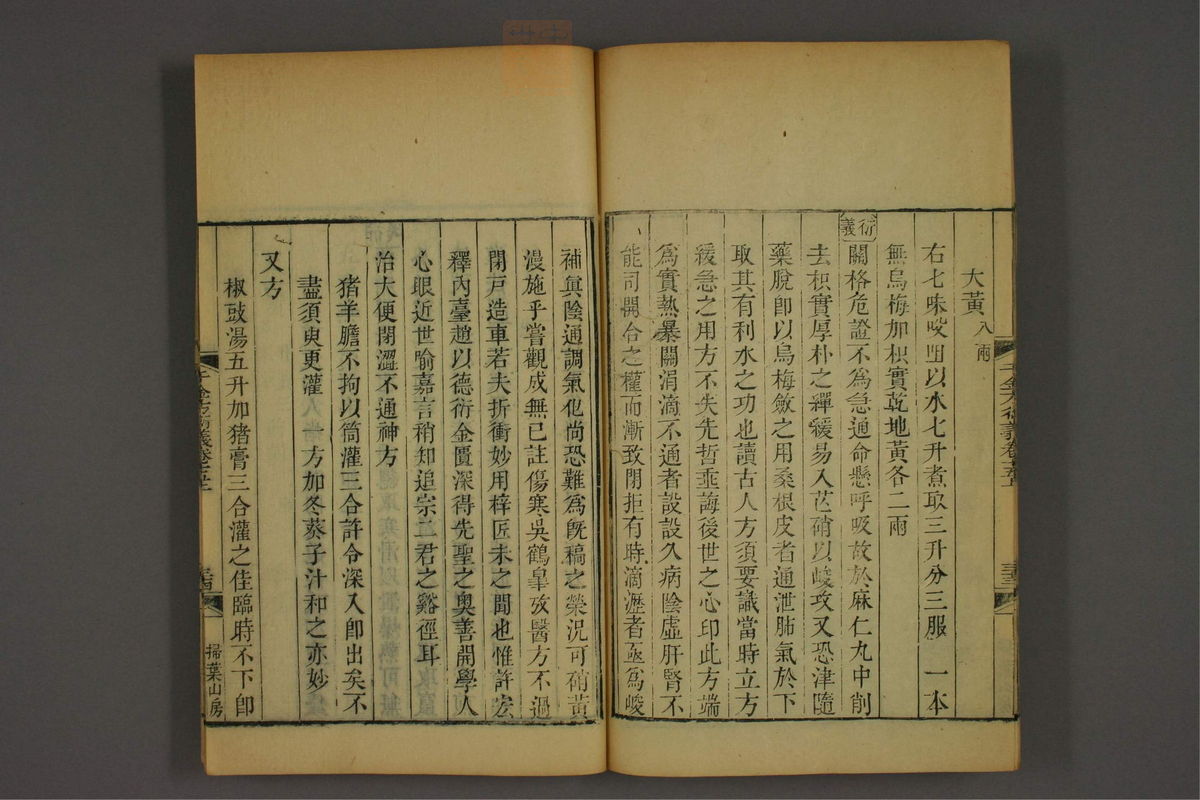 大黃八兩
右七味㕮咀以水七升煮取三升分三服 一本
無烏梅加枳實乾地黃各二兩
衍義
關格危證不爲急通命懸呼吸故於麻仁丸中削
去枳實厚朴之繟緩易入芒硝以峻攻又恐津隨
藥脫卽以烏梅斂之用桑根皮者通泄肺氣於下
取其有利水之功也讀古人方須要識當時立方
緩急之用方不失先哲垂誨後世之心印此方端
爲實熱暴關涓滴不通者設設久病陰虛肝腎不
能司開合之權而漸致閉拒有時滴瀝者亟爲峻
千金方衍義卷十五上
三十三
補眞陰通調氣化尚恐難爲旣稿之榮況可硝黃
漫施乎嘗觀成無已註傷寒吳鶴皐攷醫方不過
閉戸造車若夫折衝妙用梓匠未之聞也惟許宏
釋內臺趙以德衍金匱深得先聖之奧善開學人
心眼近世喻嘉言稍知追宗二君之谿徑耳
治大便閉澀不通神方
猪羊膽不拘以筒灌三合許令深入卽出矣不
盡須臾更灌一方加冬葵子汁和之亦妙
又方
椒豉湯五升加猪膏三合灌之佳臨時不下卽
千金方衍義卷十五上
三十四
掃葉山房